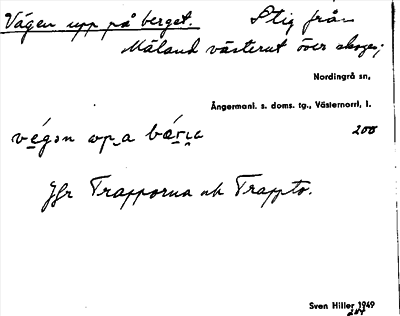 Vägen upp på berget. Stig från
Måland västerut över skogen;
Nordingrå sn,
Ångermanl. s. doms. tg., Västernorrl. l.
végən 200
Jfr Trapporna och Trappto.
Sven Hiller 1949